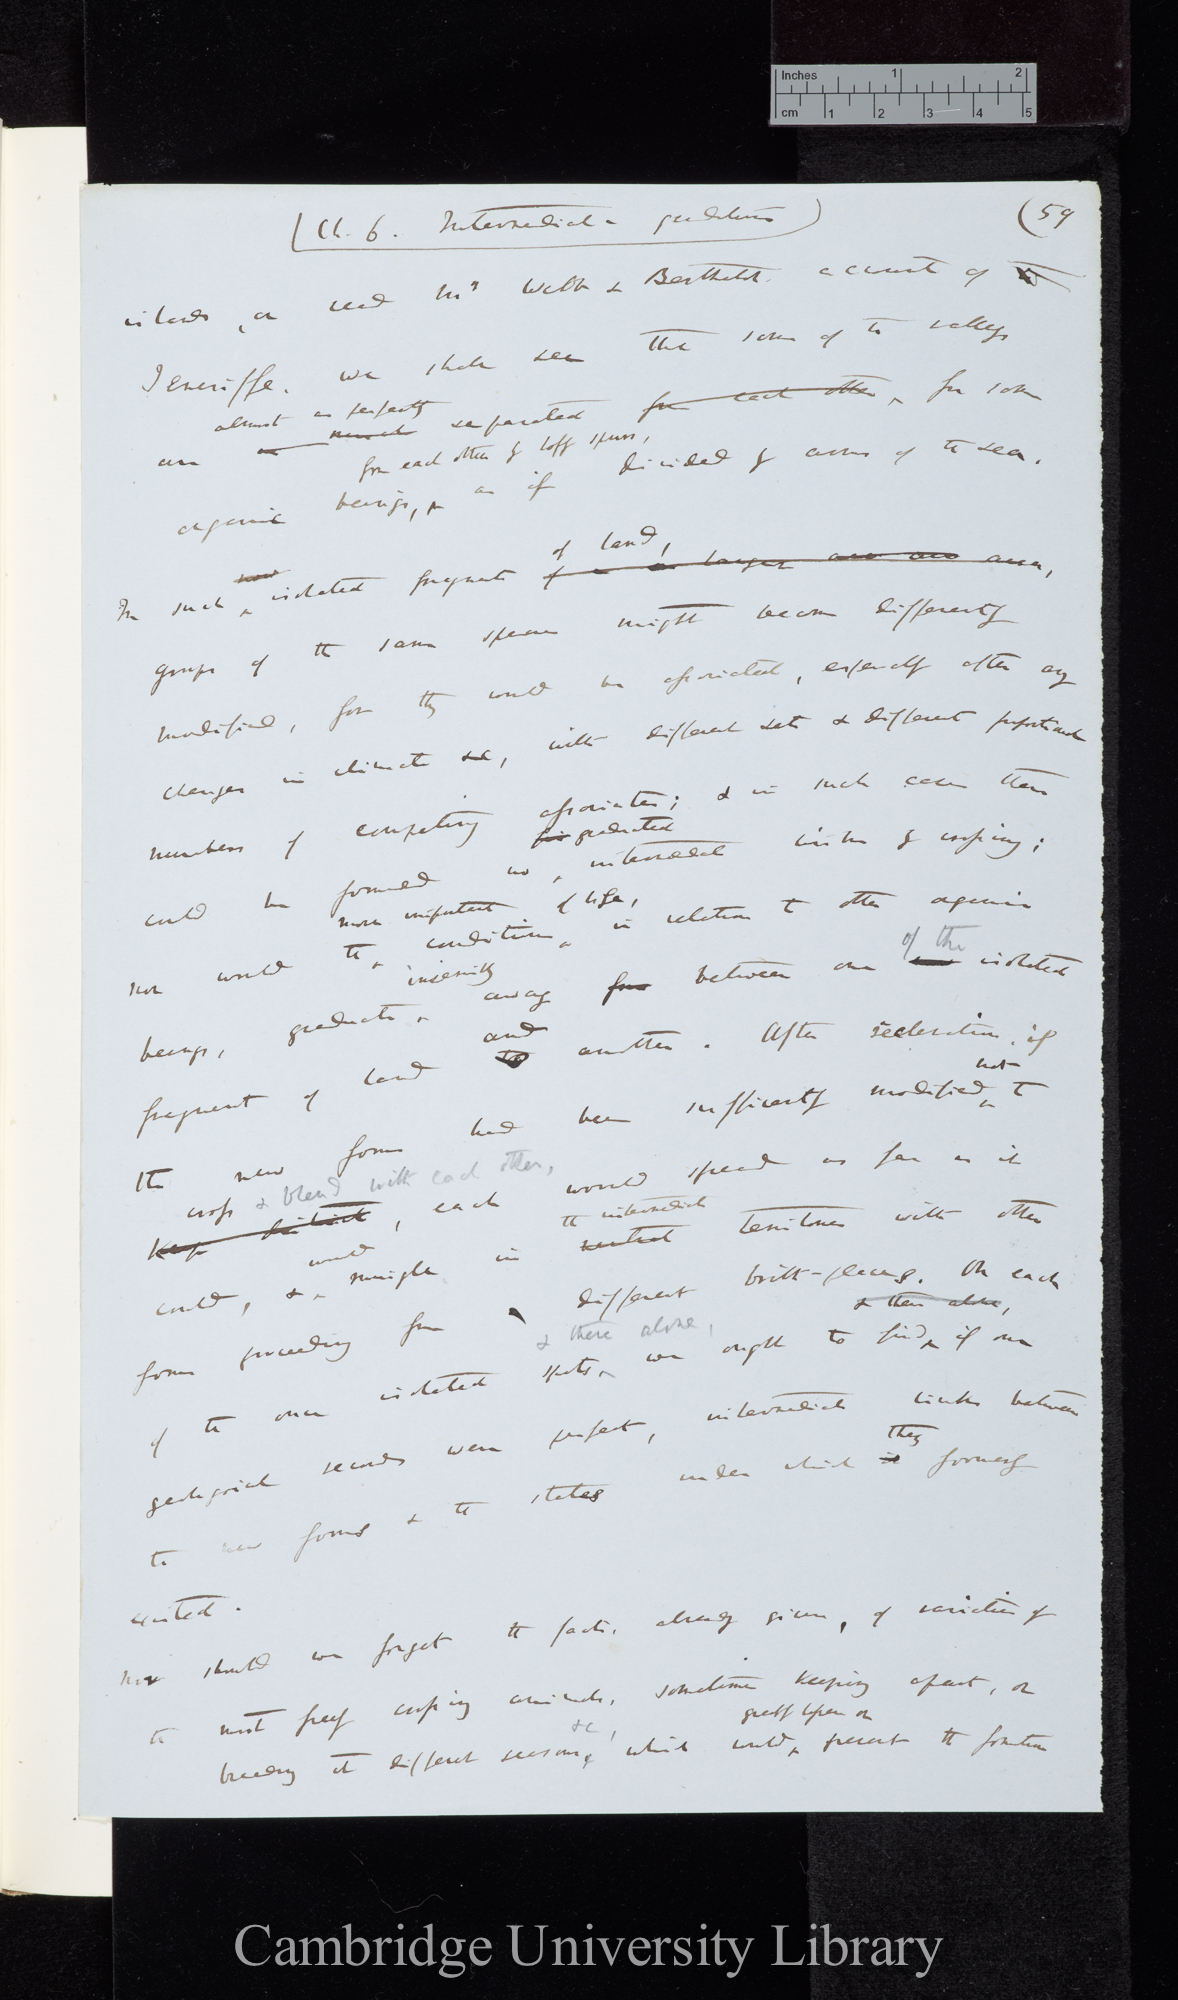 Inches 1 2
cm 1 2 3 4 5
Ch. 6. Intermediate gradations (59
islands, or read Mrs Webb & Berthelot account of
Teneriffe. we shall see that some of the valleys
almost as perfectly
are separated from each other, for some
from each other by lofty spurs,
organic beings, as if divided by arms of the sea.
of land,
In such now isolated fragments of a larger area,
groups of the same species might become differently
modified, for they would be associated, especially after any
changes in climate &c, with different sets & different proportional
numbers of competing associates; & in such cases there
graduated
could be formed no intermediate links by crossing;
more important of life,
nor would the conditions, in relation to other organic
insensibly of the
beings, graduate away from between one isolated
and
fragment of land to another. After reelevation, if
not
the new forms had been sufficiently modified to
cross & blend with each other,
keep distinct, each would spread as far as it
would the intermediate
could, & mingle in neutral territories with other
forms proceeding from different birth-places. On each
& there alone, & there alone,
of the once isolated spots, we ought to find, if our
geological records were perfect, intermediate links between
they
the new forms & the states under which formerly
existed.
Nor should we forget the facts already given, of varieties of
the most freely crossing animals, sometimes keeping apart, or
&c, greatly lessen or
breeding at different seasons, which would prevent the formation
Cambridge University Library